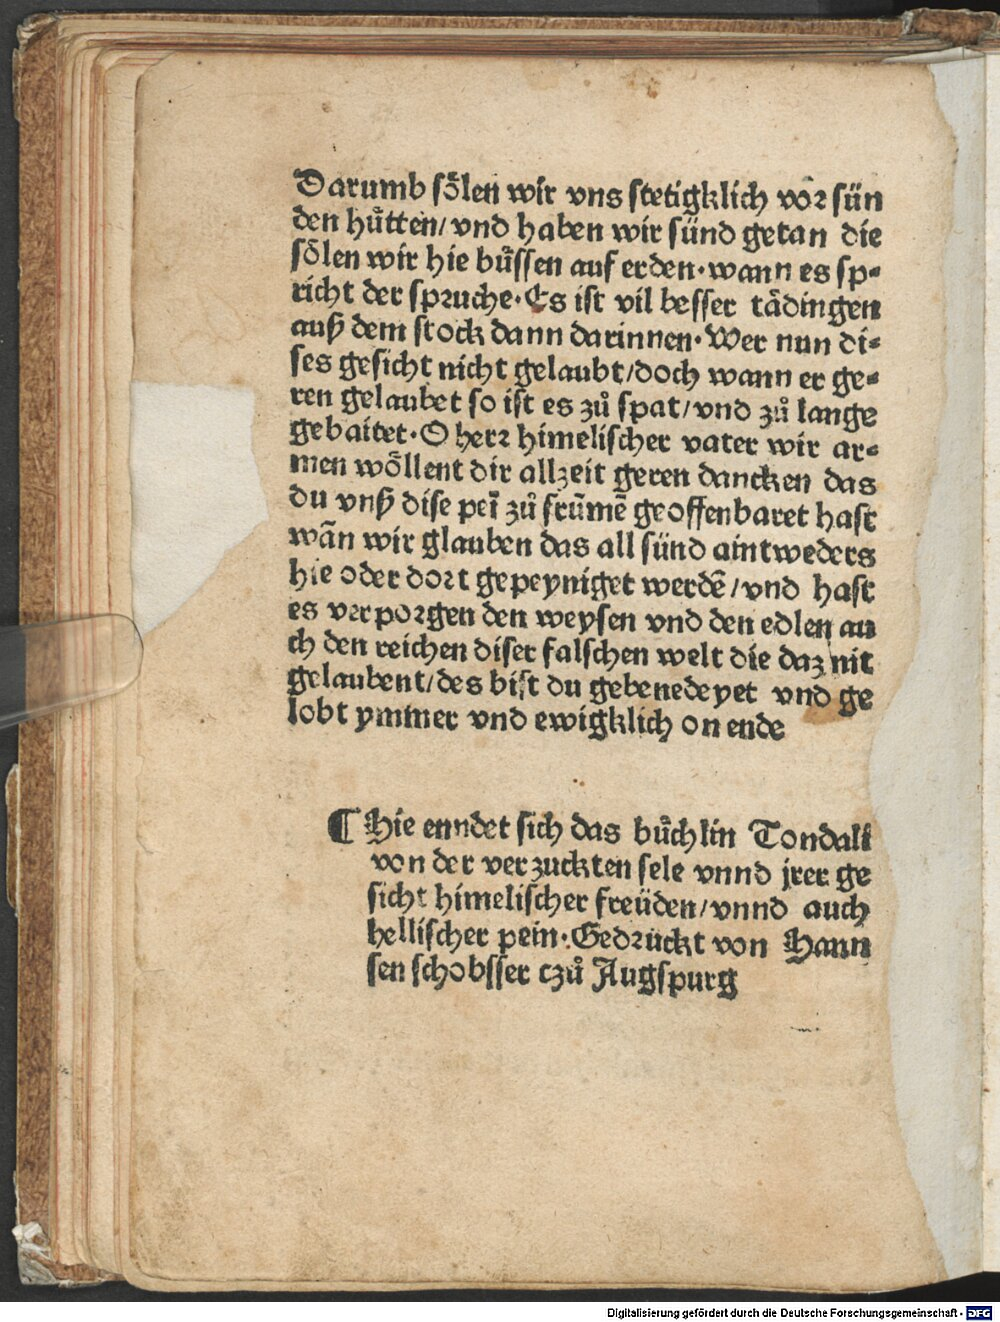 Darumb sölen wir vns stetigklich vor sün
den hůtten/vnd haben wir sünd getan die
sölen wir hie bůssen auf erden·wann es sp⸗
richt der spruche·Es ist vil besser tådingen
auß dem stock dann darinnen·Wer nun di⸗
ses gesicht nicht gelaubt/doch wann er ge⸗
ren gelaubet so ist es zů spat/vnd zů lange
gebaitet·O herr himelischer vater wir ar⸗
men wöllent dir allzeit geren dancken das
du vnß dise peī zů frūmē geoffenbaret hast
wān wir glauben das all sünd aintweders
hie oder dort gepeyniget werdē/vnd hast
es verporgen den weysen vnd den edlen au
ch den reichen diser falschen welt die daz nit
gelaubent/des bist du gebenedeyet vnd ge
lobt ymmer vnd ewigklich on ende
¶ Hie enndet sich das bůchlin Tondali
von der verzuckten sele vnnd jrer ge
sicht himelischer freüden/vnnd auch
hellischer pein·Gedruckt von Hann
sen schobsser czů Augspurg
Digitalisierung gefördert durch die Deutsche Forschungsgemeinschaft - DFG